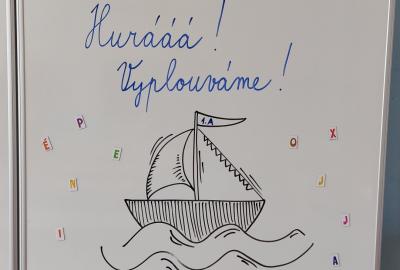 Hurááá!
Vyplouváme!
1.A
P
É
E
O
X
N
J
I
J
A